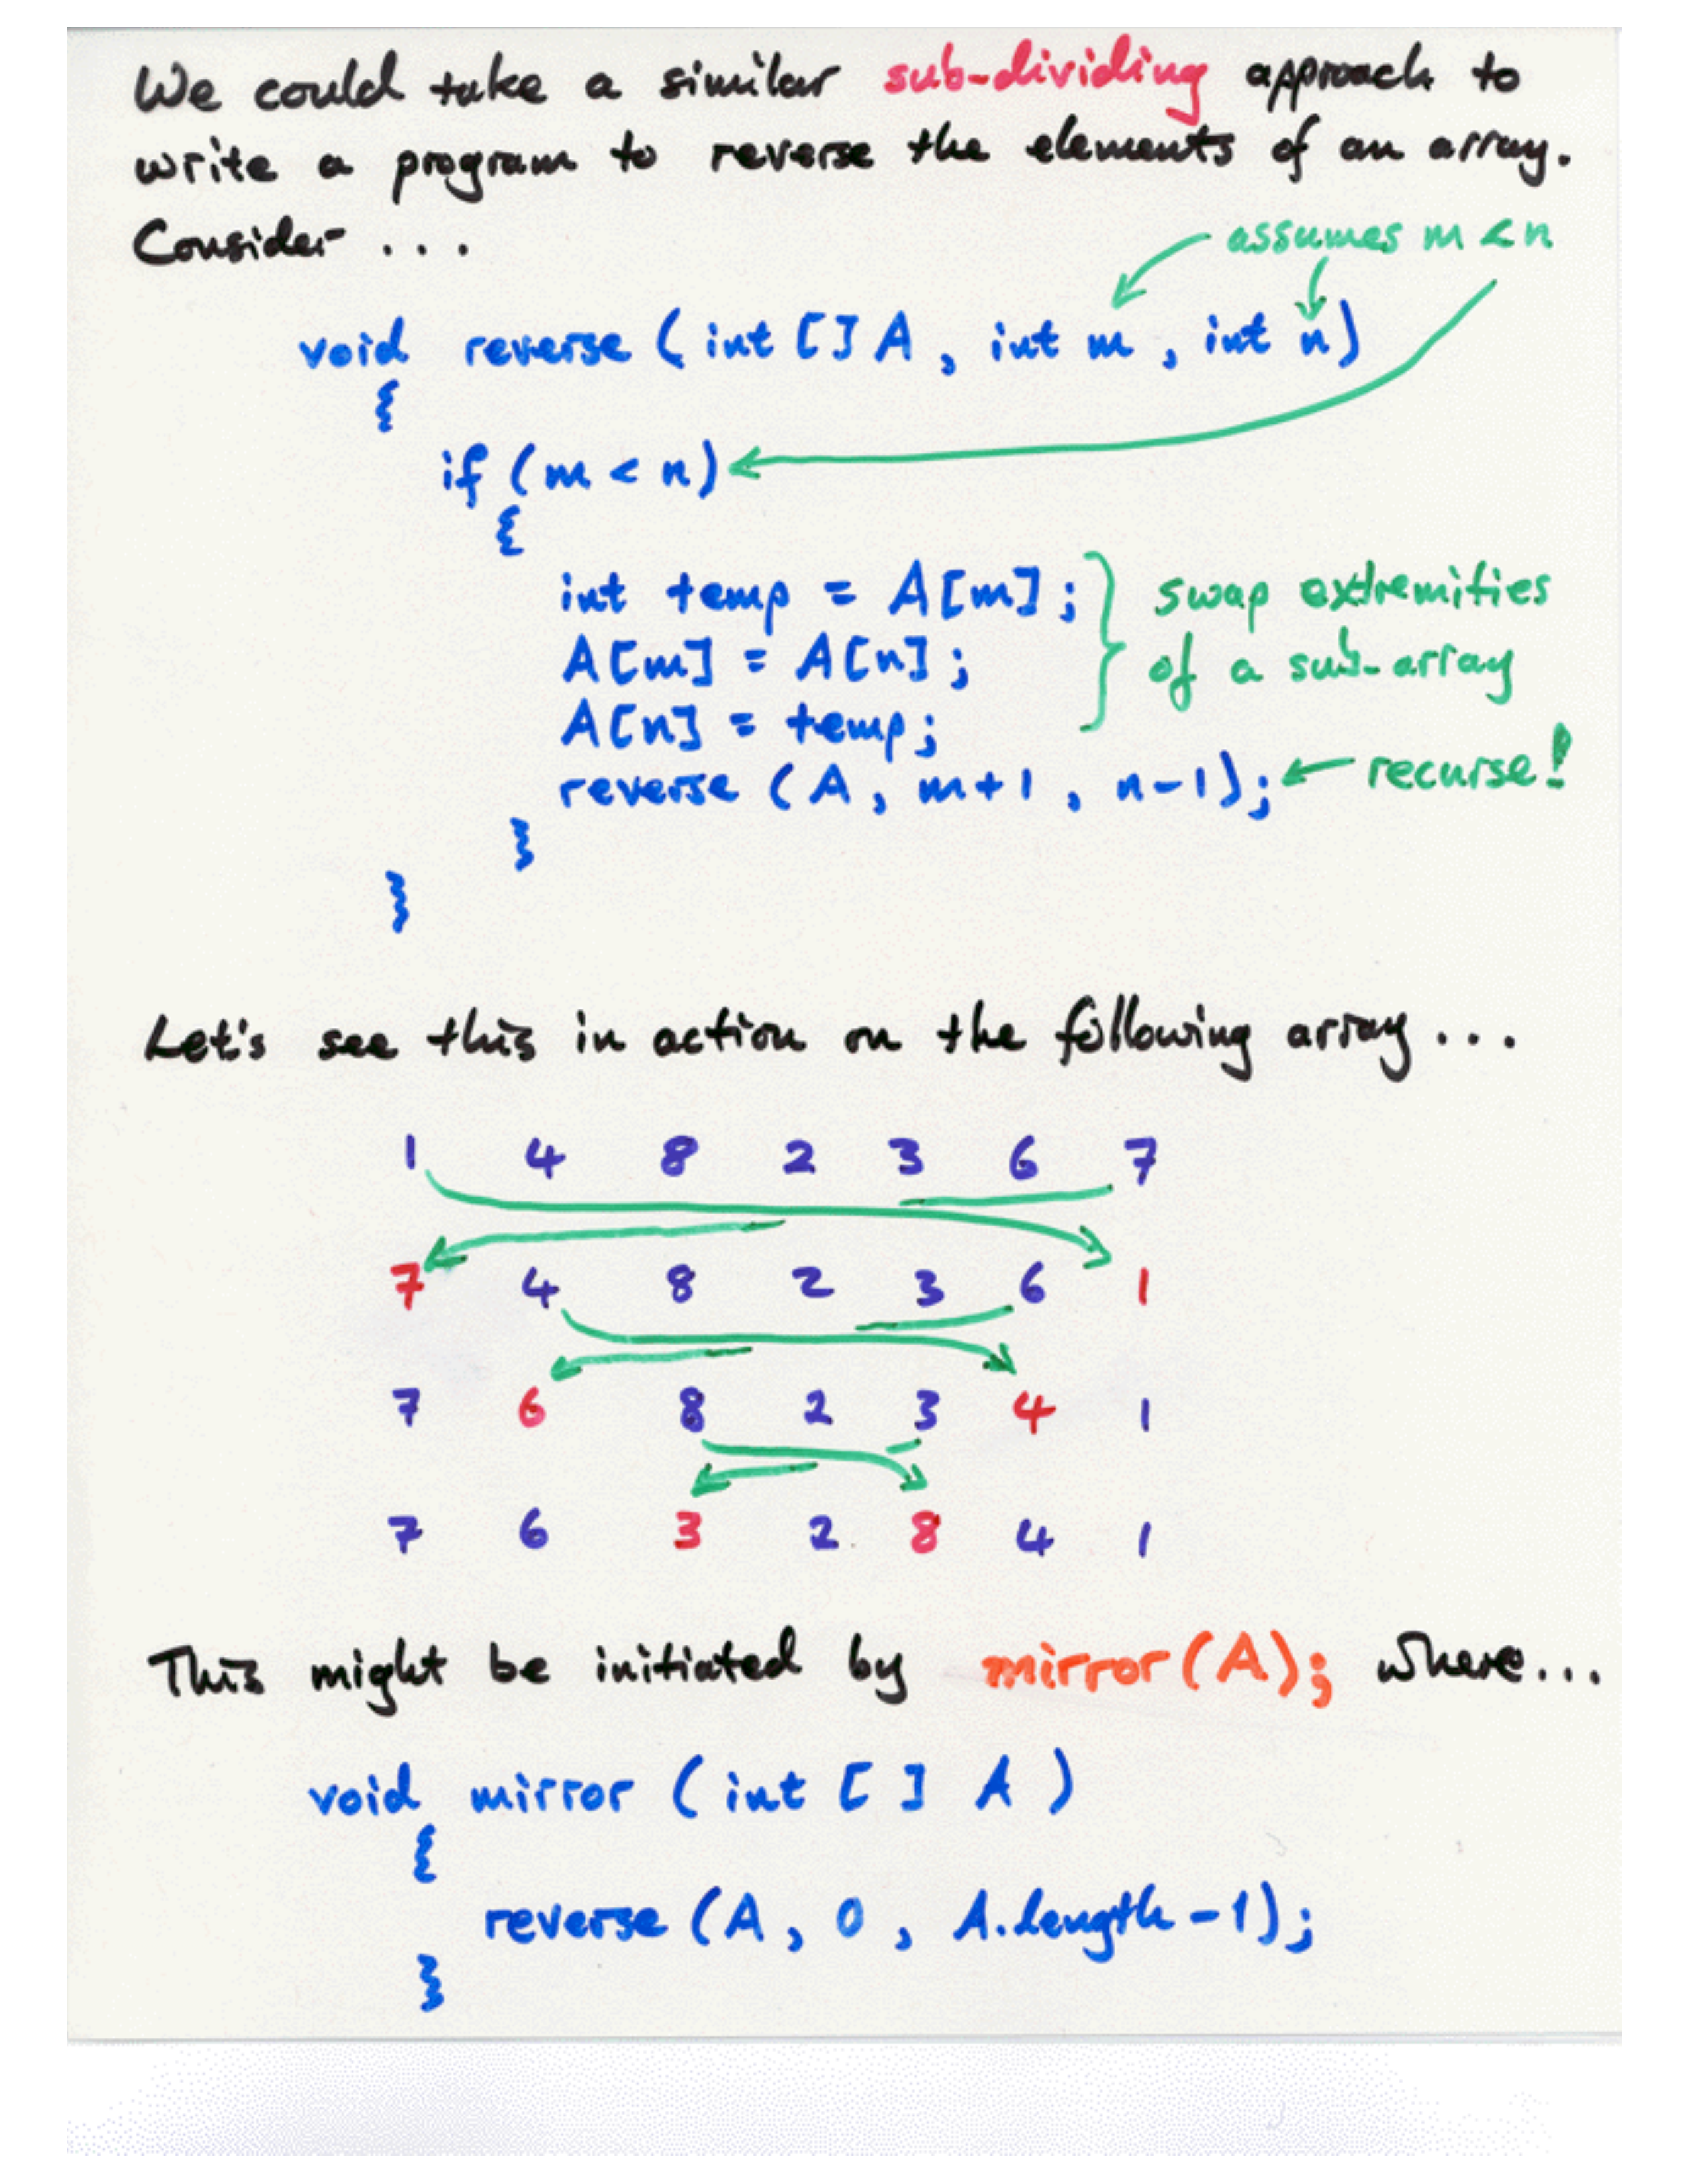 We could take a similar sub-dividing approach to
write a program to reverse the elements of an array.
Consider ...
assumes m < n
void reverse ( int [] A , int m , int n )
{
if ( m < n )
{
int temp = A[m] ;
A[m] = A[n] ;
A[n] = temp ;
swap extremities
of a sub-array
reverse ( A , m+1 , n-1 ) ;
recurse!
}
}
Let's see this in action on the following array ...
1 4 8 2 3 6 7
7 4 8 2 3 6 1
7 6 8 2 3 4 1
7 6 3 2 8 4 1
This might be initiated by mirror(A); where...
void mirror ( int [ ] A )
{
reverse ( A , 0 , A.length - 1 ) ;
}